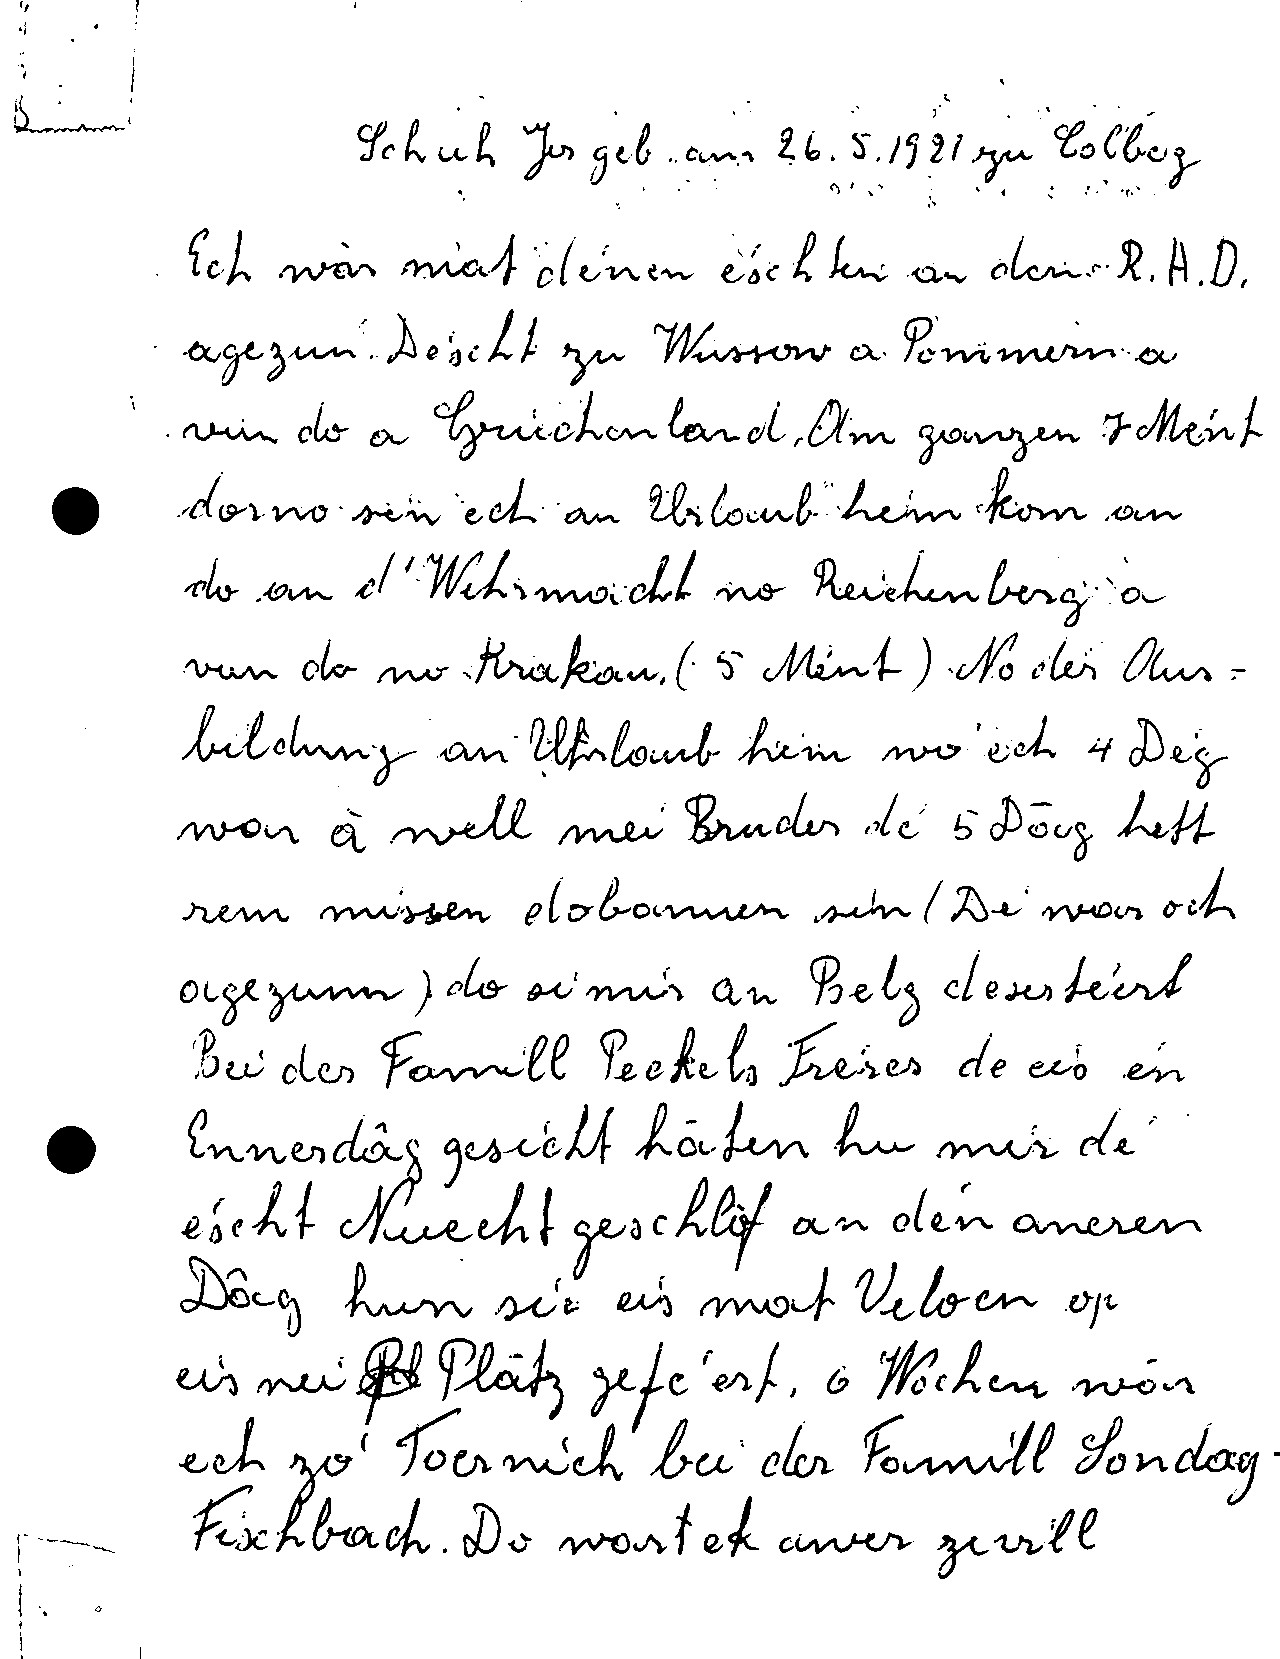 Schuh Jos geb. am 26.5.1921 zu Colbeg
Ech wàr mat dénen éschten an den R.A.D.
agezun. Déscht zu Wussow a Pommern a
vun do a Griechenland. Am ganzen 7 Mént
dorno sin ech an Urlaub heim kom an
do an d'Wehrmacht no Reichenberg a
vun do no Krakau. (5 Ment) No der Aus-
bildung an Uhrlaub heim wo ech 4 Deg
war à well mei Bruder dé 5 Dōag hett
rem missen dobannen sin (De war och
agezunn) do si mir an Belg desertéert
Bei der Famill Peckels Freres de eis en
Ennerdâg gesicht hāten hu mir dé
éscht Nuecht geschlòf an dén aneren
Dôag hun sie eis mat Veloen op
eis nei Plätz geféert. 6 Wochen wór
ech zo Toernich bei der Famill Sondag-
Fischbach. Do wort ek awer zevill